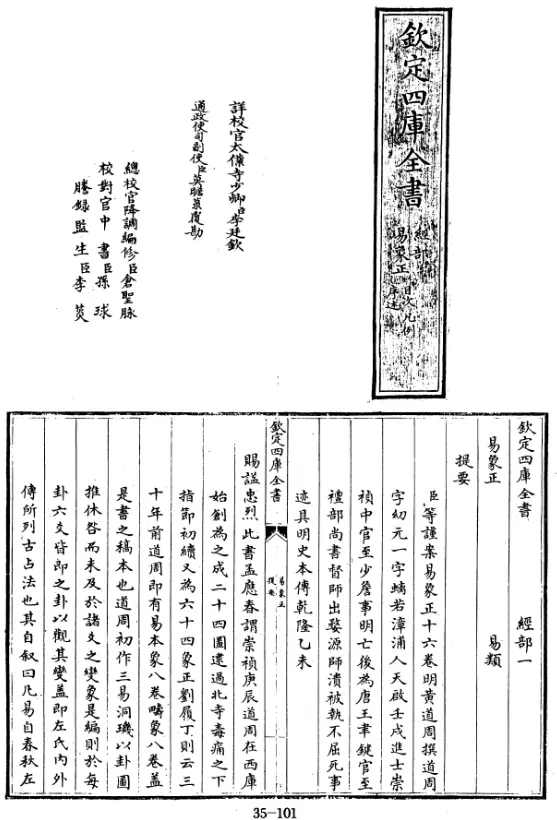 欽定四庫全書
經部
易象正
目次凡例
序述
詳校官太僕寺少卿臣李廷欽
通政使司副使臣莫瞻菉覆勘
總校官降調編修臣倉聖脉
校對官中書臣孫球
謄錄監生臣李
欽定四庫全書
經部一
易象正
易類
提要
臣等謹案易象正十六卷明黃道周撰道周
字幼元一字螭若漳浦人天啟壬戌進士崇
禎中官至少詹事明亡後為唐王聿鍵官至
禮部尚書督師出婺源師潰被執不屈死事
迹具明史本傳乾隆乙未
欽定四庫全書
易象正
提要
賜諡忠烈此書孟應春謂崇禎庚辰道周在西庫
始創為之成二十四圖還過北寺毒痛之下
指節初續又為六十四象正劉履丁則云三
十年前道周即有易本象八卷疇象八卷蓋
是書之稿本也道周初作三易洞璣以卦圖
推休咎而未及於諸爻之變象是編則於每
卦六爻皆即之卦以觀其變蓋即左氏內外
傳所列古占法也其自叙曰凡易自春秋左
35-101